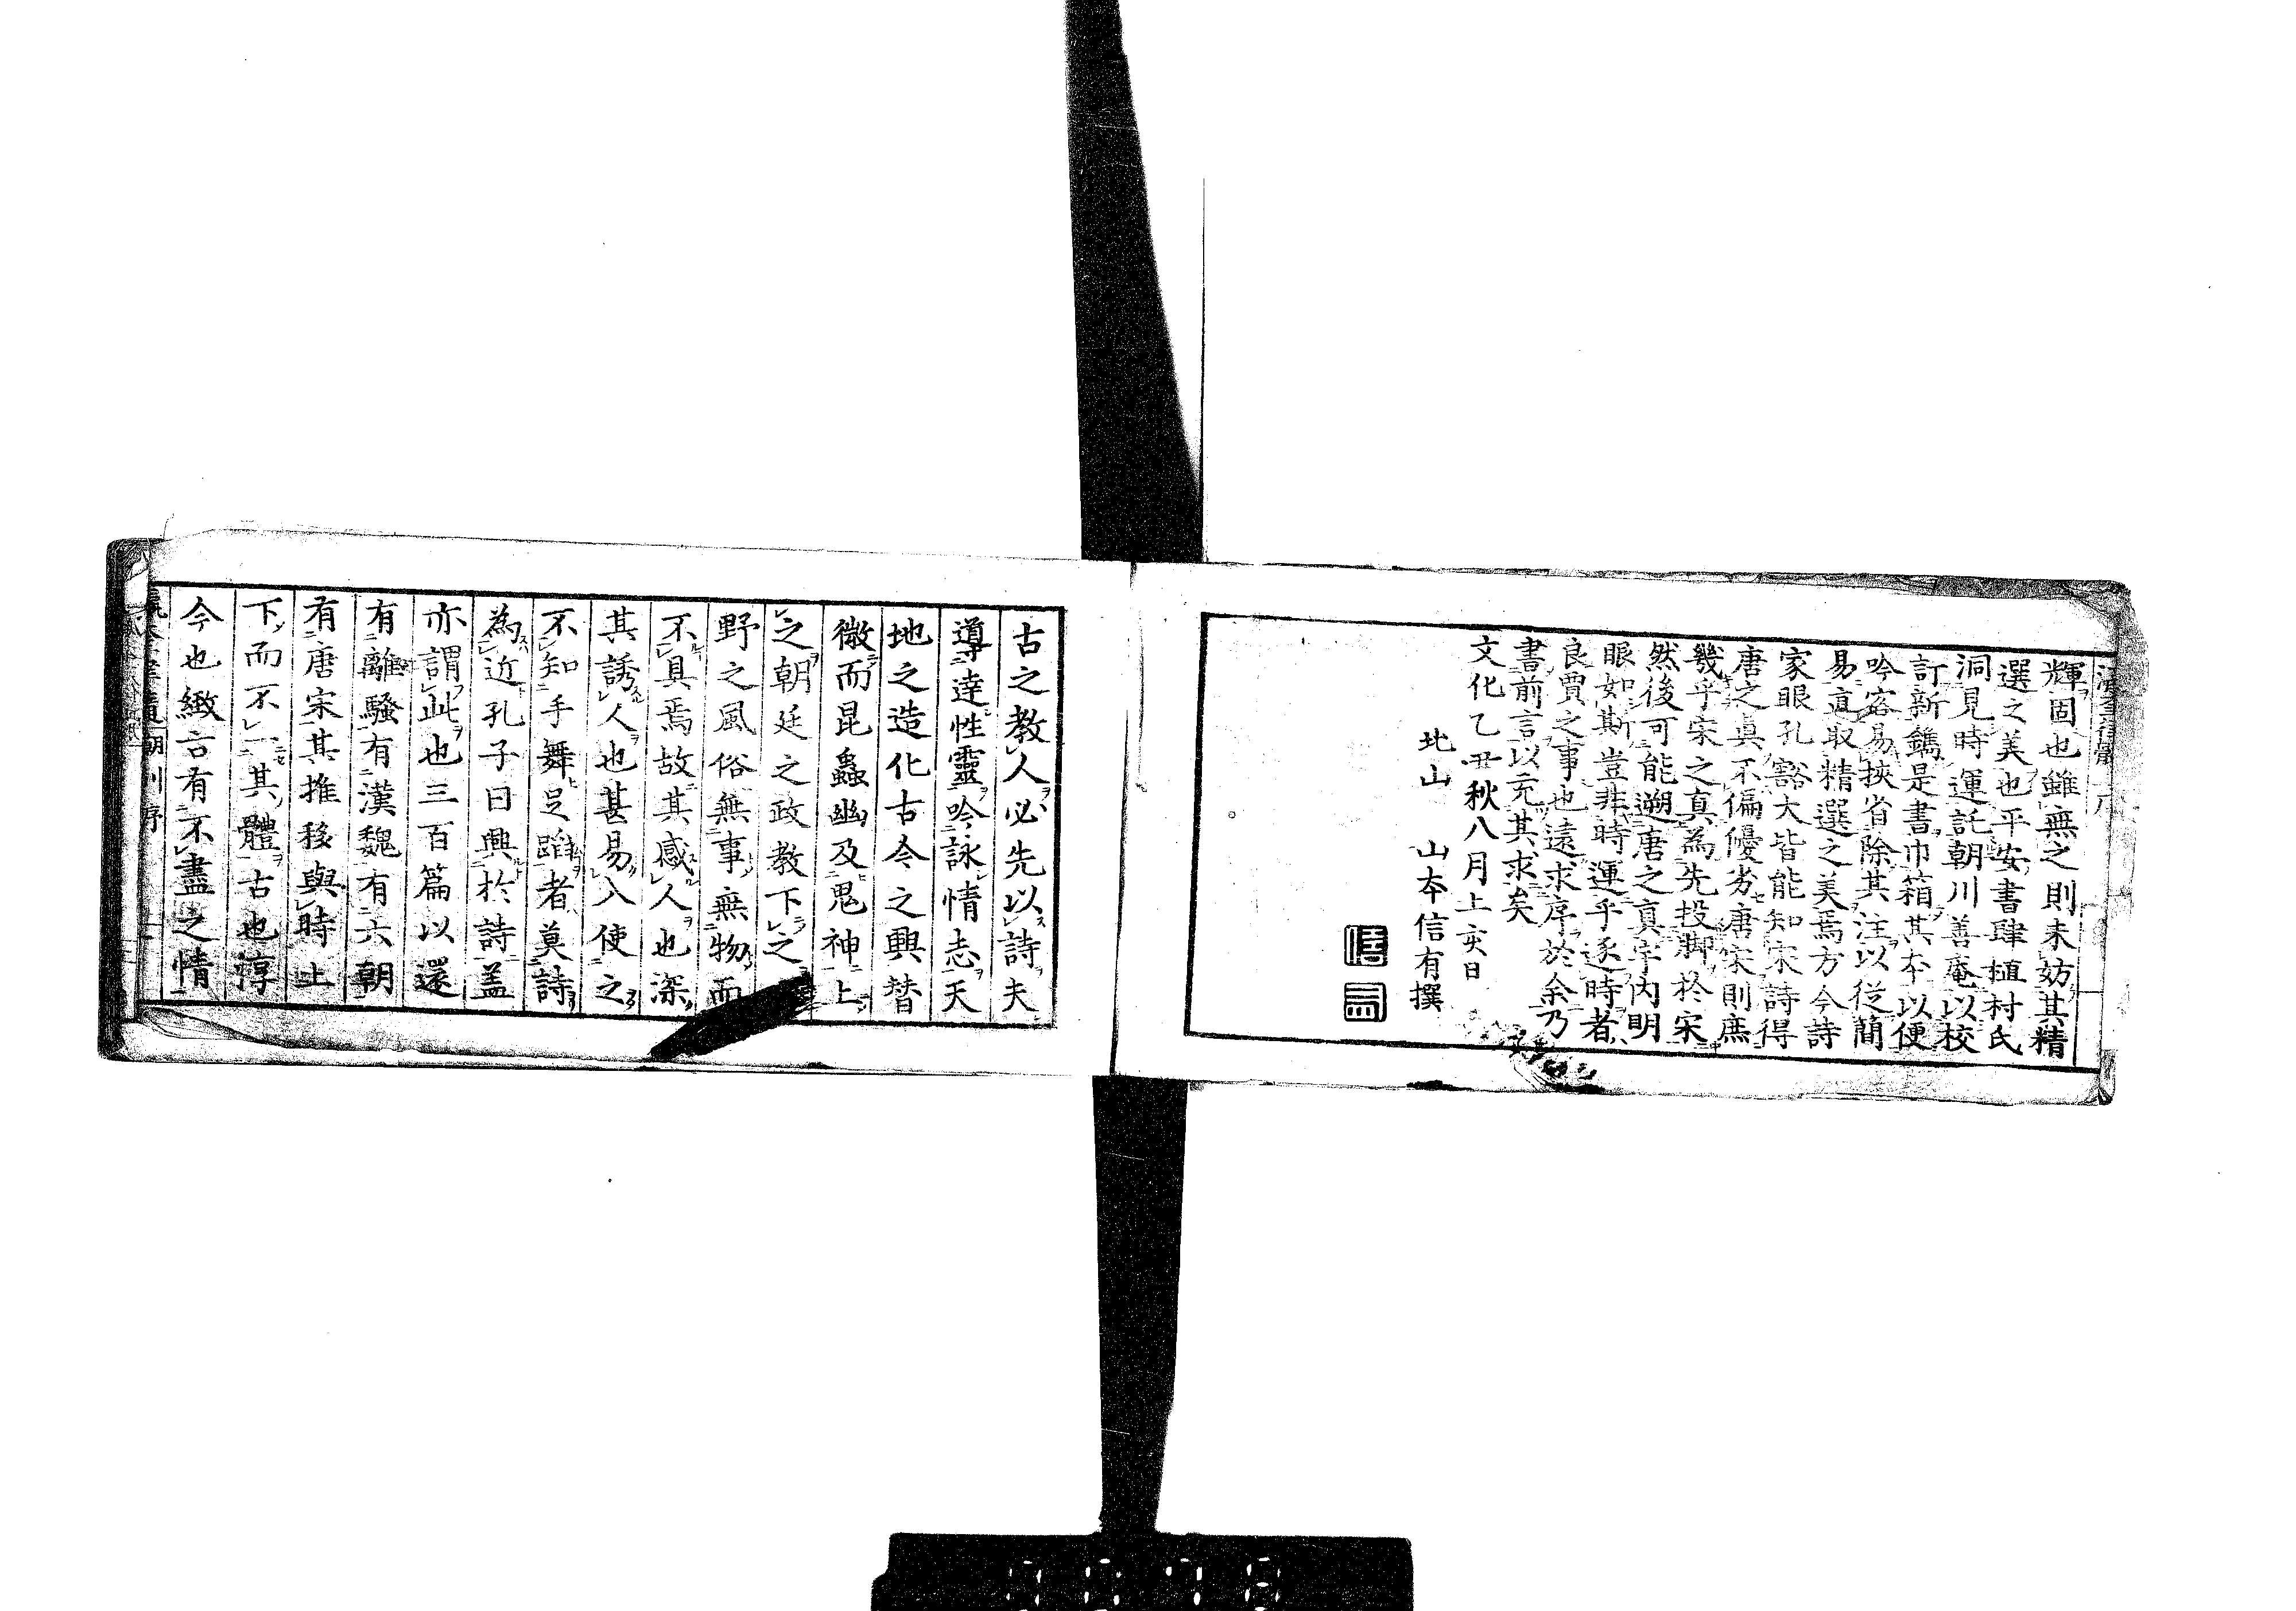 輝固也雖無之則未妨其精
選之美也平安書肆植村氏
洞見時運託朝川善庵以校
訂新鐫是書巾箱其本以便
吟客易挾省除其注以從簡
易直取精選之美焉方今詩
家眼孔豁大皆能知宋詩得
唐之真不偏優劣唐宋則庶
幾乎宋之真為先投脚於宋
然後可能遡唐之真宇內明
眼如斯豈非時運乎逐時者
良賈之事也遠求序於余乃
書前言以充其求矣
文化乙丑秋八月上亥日
北山 山本信有撰
古之教人必先以詩夫
導達性靈吟詠情志天
地之造化古今之興替
微而昆蟲幽及鬼神上
之朝廷之政教下之
野之風俗無事無物而
不具焉故其感人也深
其誘人也甚易入使之
不知手舞足蹈者莫詩
為近孔子曰興於詩蓋
亦謂此也三百篇以還
有離騷有漢魏有六朝
有唐宋其推移與時上
下而不一其體古也淳
今也緻言有不盡之情